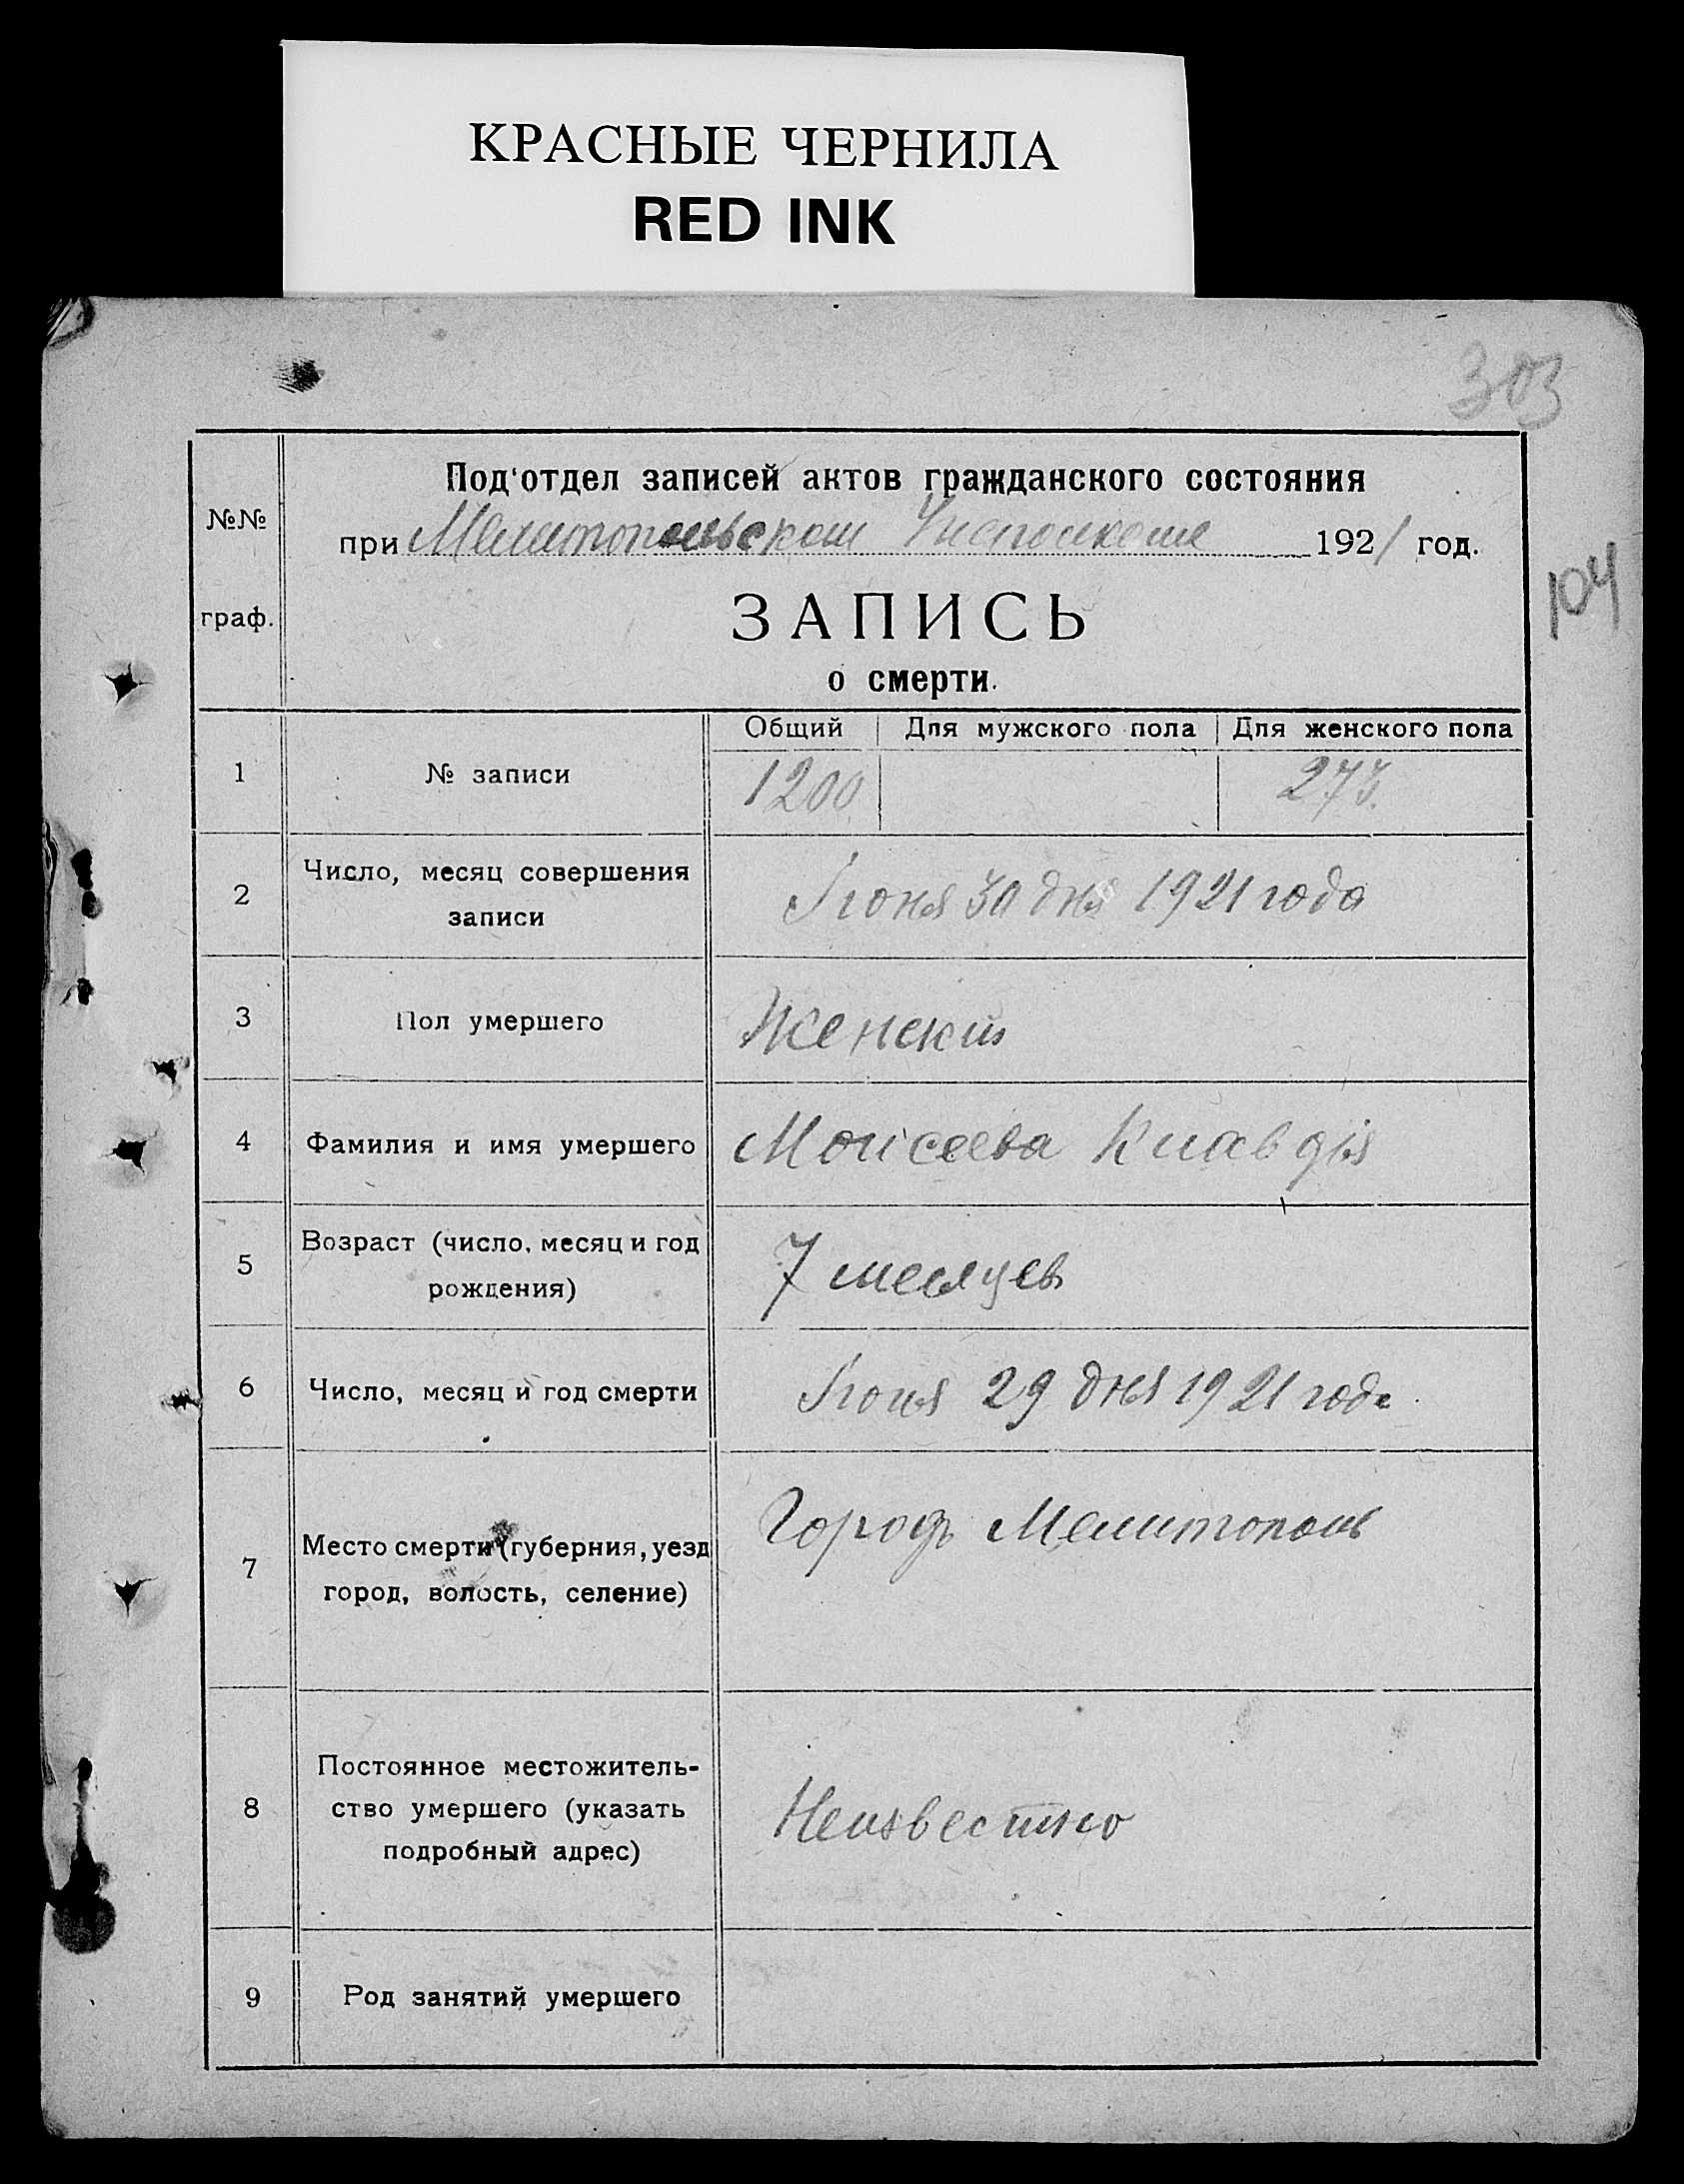 КРАСНЫЕ ЧЕРНИЛА
RED INK
303
Под‘отдел записей актов гражданского состояния
№№
при Мелитопольском Исполкоме 1921 год.
104
граф.
ЗАПИСЬ
о смерти.
Общий Для мужского пола Для женского пола
1 № записи 1200. 273.
2 Число, месяц совершения
записи
Іюня 30 дня 1921 года
3 Пол умершего Женский
4 Фамилия и имя умершего Моисеева Клавдія
5 Возраст (число, месяц и год
рождения)
7 месяцев
6 Число, месяц и год смерти Іюня 29 дня 1921 года
7 Место смерти (губерния, уезд
город, волость, селение)
Городъ Мелитополь
8 Постоянное местожитель-
ство умершего (указать
подробный адрес)
Неизвестно
9 Род занятий умершего